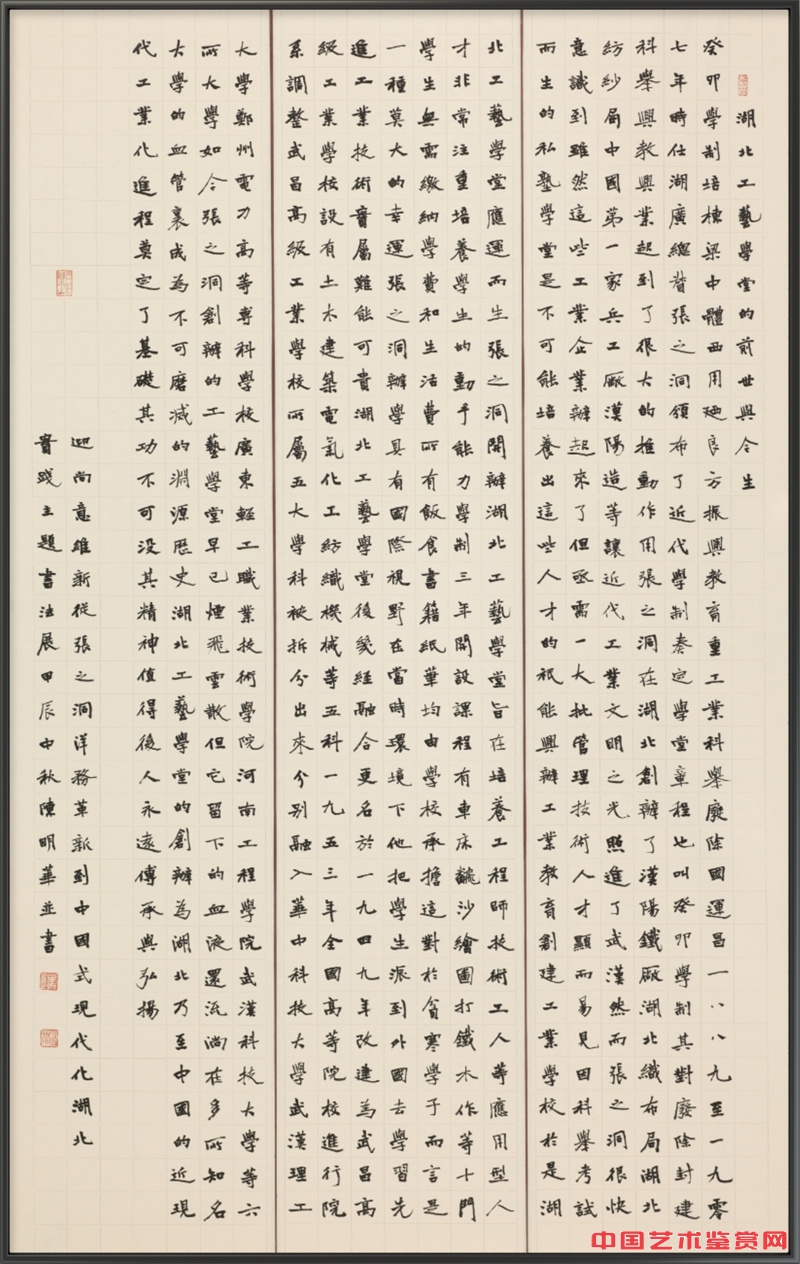 湖北工藝學堂的前世與今生
癸卯學制培棟梁中體西用廼良方振興教育重工業科舉廢除國運昌一八八九至一九零
七年時任湖廣總督張之洞領布了近代學制奏定學堂章程也叫癸卯學制其對廢除封建
科舉興教興業起到了很大的推動作用張之洞在湖北創辦了漢陽鐵廠湖北織布局湖北
紡紗局中國第一家兵工廠漢陽造等讓近代工業文明之光照進了武漢然而張之洞很快
意識到雖然這些工業企業辦起來了但亟需一大批管理技術人才顯而易見因科舉考試
而生的私塾學堂是不可能培養出這些人才的祇能興辦工業教育創建工業學校於是湖
北工藝學堂應運而生張之洞開辦湖北工藝學堂旨在培養工程師技術工人等應用型人
才非常注重培養學生的動手能力學制三年開設課程有車床翻沙繪圖打鐵木作等十門
學生無需繳納學費和生活費所有飯食書籍紙筆均由學校承擔這對於貧寒學子而言是
一種莫大的幸運張之洞辦學具有國際視野在當時環境下他把學生派到外國去學習先
進工業技術實屬難能可貴湖北工藝學堂後幾經融合更名於一九四九年改建為武昌高
級工業學校設有土木建築電氣化工紡織機械等五科一九五三年全國高等院校進行院
系調整武昌高級工業學校所屬五大學科被拆分出來分別融入華中科技大學武漢理工
大學鄭州電力高等專科學校廣東輕工職業技術學院河南工程學院武漢科技大學等六
所大學如今張之洞創辦的工藝學堂早已煙飛雲散但它留下的血液還流淌在多所知名
大學的血管裏成為不可磨滅的淵源歷史湖北工藝學堂的創辦為湖北乃至中國的近現
代工業化進程奠定了基礎其功不可沒其精神值得後人永遠傳承與弘揚
迎尚意維新從張之洞洋務革新到中國式現代化湖北
實踐主題書法展甲辰中秋陳明華並書
中国艺术鉴赏网